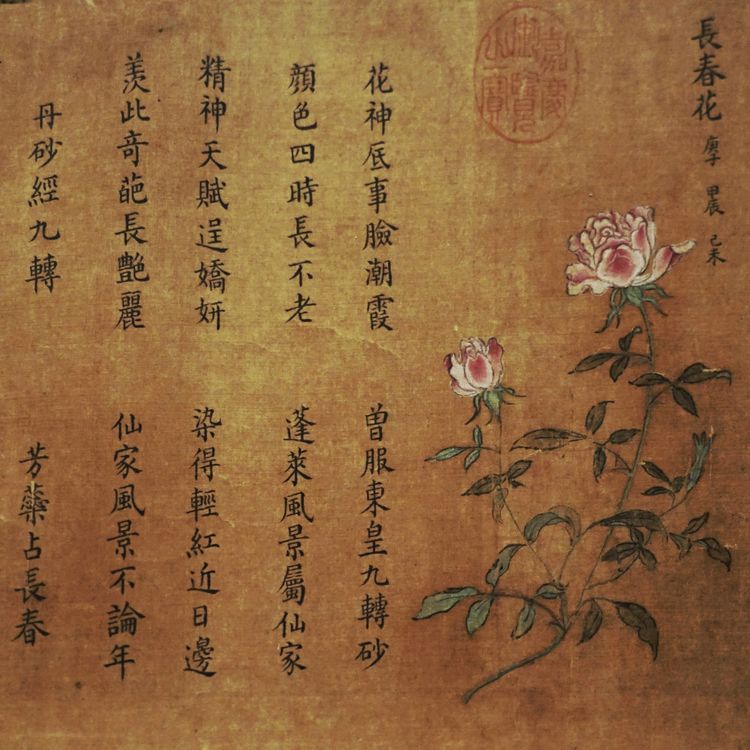 長春花 庚子 甲辰 己未
嘉慶御覽之寶
花神底事臉潮霞 曾服東皇九轉砂
顏色四時長不老 蓬萊風景屬仙家
精神天賦逞嬌妍 染得輕紅近日邊
羨此奇葩長艷麗 仙家風景不論年
丹砂經九轉 芳蘂占長春